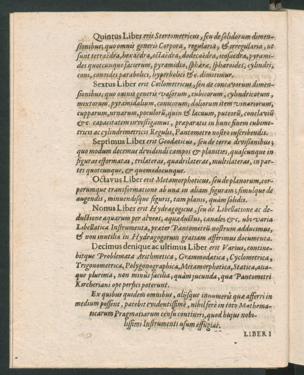 Quintus Liber erit Stereometricus, seu de solidorum dimen-
sionibus, quo omnis generis Corpora, regularia, & irregularia, ut
sunt tetraëdra, hexaëdra, octaëdra, dodecaëdra, icosaëdra, pyrami-
des quotcunque facierum, pyramidia, sphæræ, sphæroides, cylindri,
coni, conoides parabolici, hyperbolici &c. dimetimur.
Sextus Liber erit Coilometricus, seu de concavorum dimen-
sionibus, quo omnis generis vasorum, cubicorum, cylindricorum,
mixtorum, pyramidalium, conicorum, doliorum item vinariorum,
cupparum, urnarum, poculorum, quin & lacuum, puteorum, concavitatem
& capacitatem investigamus, præparatis in hunc finem cubome-
tricis ac cylindrometricis Regulis, Pantometro nostro inscribendis.
Septimus Liber erit Geodæticus, seu de terræ divisionibus,
quo modum docemus dividendi campos & planities, quascunque in
figuras efformatas, trilateras, quadrilateras, multilateras, in par-
tes quotcunque, & quomodocunque.
Octavus Liber erit Metamorphoticus, seu de planorum, cor-
porumque transformatione ab una in aliam figuram; simulque de
augendis, minuendisque figuris, tam planis, quàm solidis.
Nonus Liber erit Hydragogicus, seu de Libellatione ac de-
ductione aquarum per alveos, aquæductus, canales &c. ubi varia
Libellatica Instrumenta, præter Pantometrū nostrum adducimus,
& non inutilia in Hydragogorum gratiam afferimus documenta.
Decimus denique ac ultimus Liber erit Varius, contine-
bitque Problemata Arithmetica, Grammodatica, Cyclometrica,
Trigonometrica, Polygonographica, Metamorphotica, Statica, aliaque
plurima, non minus facilia, quàm jucunda, quæ Pantometri
Kircheriani ope perfici poterunt.
Ex quibus quidem omnibus, aliisque innumeris quæ afferri in
medium possent, patebit evidentissimè, nihil ferè in toto Mathema-
ticarum Pragmatiarum censu contineri, quod hujus nobi-
lissimi Instrumenti usum effugiat.
LIBER I